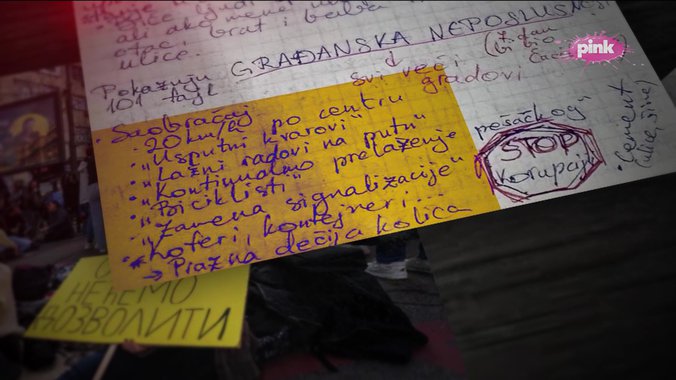 ali ako
otac, brat i beba
ulice.
GRAĐANSKA NEPOSLUŠNOST
svi veći gradovi
Pokazuju
101 tajl
pink
• Saobraćaj
20 km/č po centru
• "Usputni kvarovi"
• "Lažni radovi na putu"
• "Kontinualno prelaženje pešačkog"
• "Biciklisti"
• "Zamena signalizacije"
• Koferi, kontejneri...
→ Prazna dečija kolica
STOP
korupciji
• Cement
(ulice, šine)
НЕЋЕМО
ДОЗВОЛИТИ